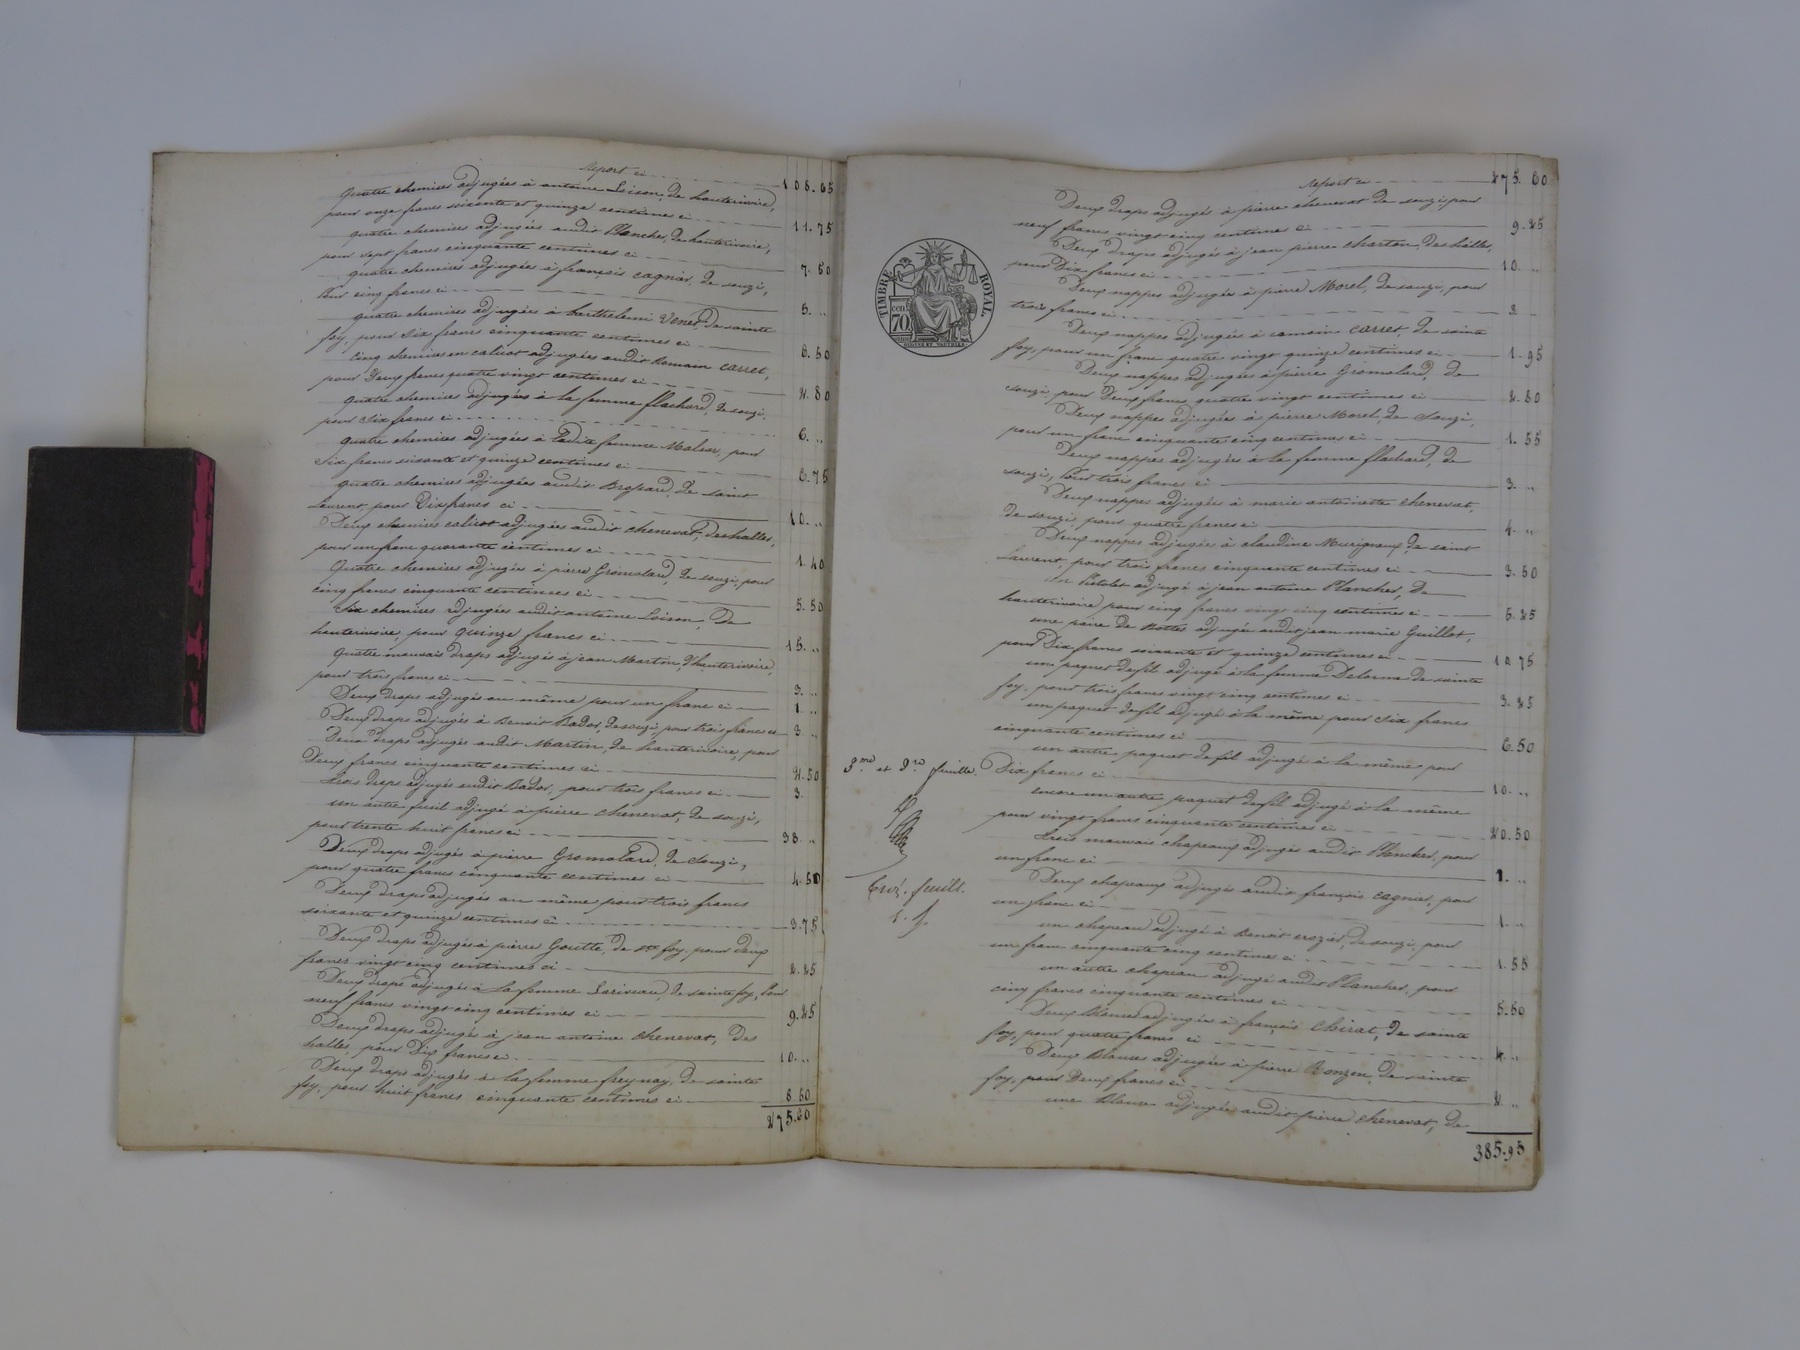 Report ci 108.65
quatre chemises adjugées à antoine Loison, de hauterivoire,
pour onze francs soixante et quinze centimes ci 11.75
quatre chemises adjugées audit Plancher, de hauterivoire,
pour sept francs cinquante centimes ci 7.50
quatre chemises adjugées à françois cagnier, de souzi,
pour cinq francs ci 5. ..
quatre chemises adjugées à barthelemi Venet, de sainte
foy, pour six francs cinquante centimes ci 6.50
Cinq chemises en calicot adjugées audit Romain carret,
pour Deux francs quatre vingt centimes ci 2.80
quatre chemises adjugées à la femme flachard, de souzi,
pour six francs ci 6. ..
quatre chemises adjugées à ladite femme, pour
six francs soixante et quinze centimes ci 6.75
quatre chemises adjugées audit, de saint
Laurent, pour Dix francs ci 10. ..
Deux chemises calicot adjugées audit chenevat, des halles,
pour un franc quarante centimes ci 1.40
Quatre chemises adjugées à pierre Gromolard, de souzi, pour
cinq francs cinquante centimes ci 5.50
Six chemises adjugées audit antoine Loison, de
hauterivoire, pour quinze francs ci 15. ..
Quatre mauvais draps adjugés à jean Martin, d'hauterivoire,
pour trois francs ci 3. ..
Deux draps adjugés au même pour un franc ci 1. ..
Deux draps adjugés à Benoit Bador, de souzi, pour trois francs ci 3 ..
Deux draps adjugés audit Martin, de hauterivoire, pour
Deux francs cinquante centimes ci 2.50
trois draps adjugés audit Bador, pour trois francs ci 3.
un autre fusil adjugé à pierre chenevat, de souzi,
pour trente huit francs ci 38. ..
Deux draps adjugés à pierre Gromolard, de souzi,
pour quatre francs cinquante centimes ci 4.50
Deux draps adjugés au même pour trois francs
soixante et quinze centimes ci 3.75
Deux draps adjugés à pierre Goutte, de ste foy, pour deux
francs vingt cinq centimes ci 2.25
Deux draps adjugés à la femme, de sainte foy, pour
neuf francs vingt cinq centimes ci 9.25
Deux draps adjugés à jean antoine chenevat, des
halles, pour Dix francs ci 10. ..
Deux draps adjugés à la femme freynay, de sainte
foy, pour huit francs cinquante centimes ci 8.50
275.60
Report ci 275.60
TIMBRE ROYAL
cen 70
Deux draps adjugés à pierre chenevat de souzi, pour
neuf francs vingt cinq centimes ci 9.25
Deux draps adjugés à jean pierre charton, des halles,
pour Dix francs ci 10. ..
Deux nappes adjugées à pierre Morel, de souzi, pour
trois francs ci 3
Deux nappes adjugées à romain carret de sainte
foy, pour un franc quatre vingt quinze centimes ci 1.95
Deux nappes adjugées à pierre Gromolard, de
souzi, pour Deux francs quatre vingt centimes ci 2.80
Deux nappes adjugées à pierre Morel, de souzi,
pour un franc cinquante cinq centimes ci 1.55
Deux nappes adjugées à la femme flachard, de
souzi, pour trois francs ci 3. ..
Deux nappes adjugées à marie antoinette chenevat,
de souzi, pour quatre francs ci 4. ..
Deux nappes adjugées à claudine, de saint
Laurent, pour trois francs cinquante centimes ci 3.50
un Pistolet adjugé à jean antoine Plancher, de
hauterivoire pour cinq francs vingt cinq centimes ci 5.25
une paire de Bottes adjugée audit jean marie Guillot,
pour Dix francs soixante et quinze centimes ci 10.75
un paquet de fil adjugé à la femme Delorme de sainte
foy, pour trois francs vingt cinq centimes ci 3.25
un paquet de fil adjugé à la même pour six francs
cinquante centimes ci 6.50
un autre paquet de fil adjugé à la même pour
Dix francs ci 10. ..
encore un autre paquet de fil adjugé à la même
pour vingt francs cinquante centimes ci 20.50
trois mauvais chapeaux adjugés audit Plancher, pour
un franc ci 1. ..
Deux chapeaux adjugés audit françois cagnier, pour
un franc ci 1. ..
un chapeau adjugé à Benoit crozier, de souzi, pour
un franc cinquante cinq centimes ci 1.55
un autre chapeau adjugé audit Plancher, pour
cinq francs cinquante centimes ci 5.50
Deux Blouses adjugées à françois Chirat, de sainte
foy, pour quatre francs ci 4. ..
Deux Blouses adjugées à pierre Ronzon, de sainte
foy, pour Deux francs ci 2. ..
une Blouse adjugée audit pierre chenevat, de
385.95
feuille.
feuill.